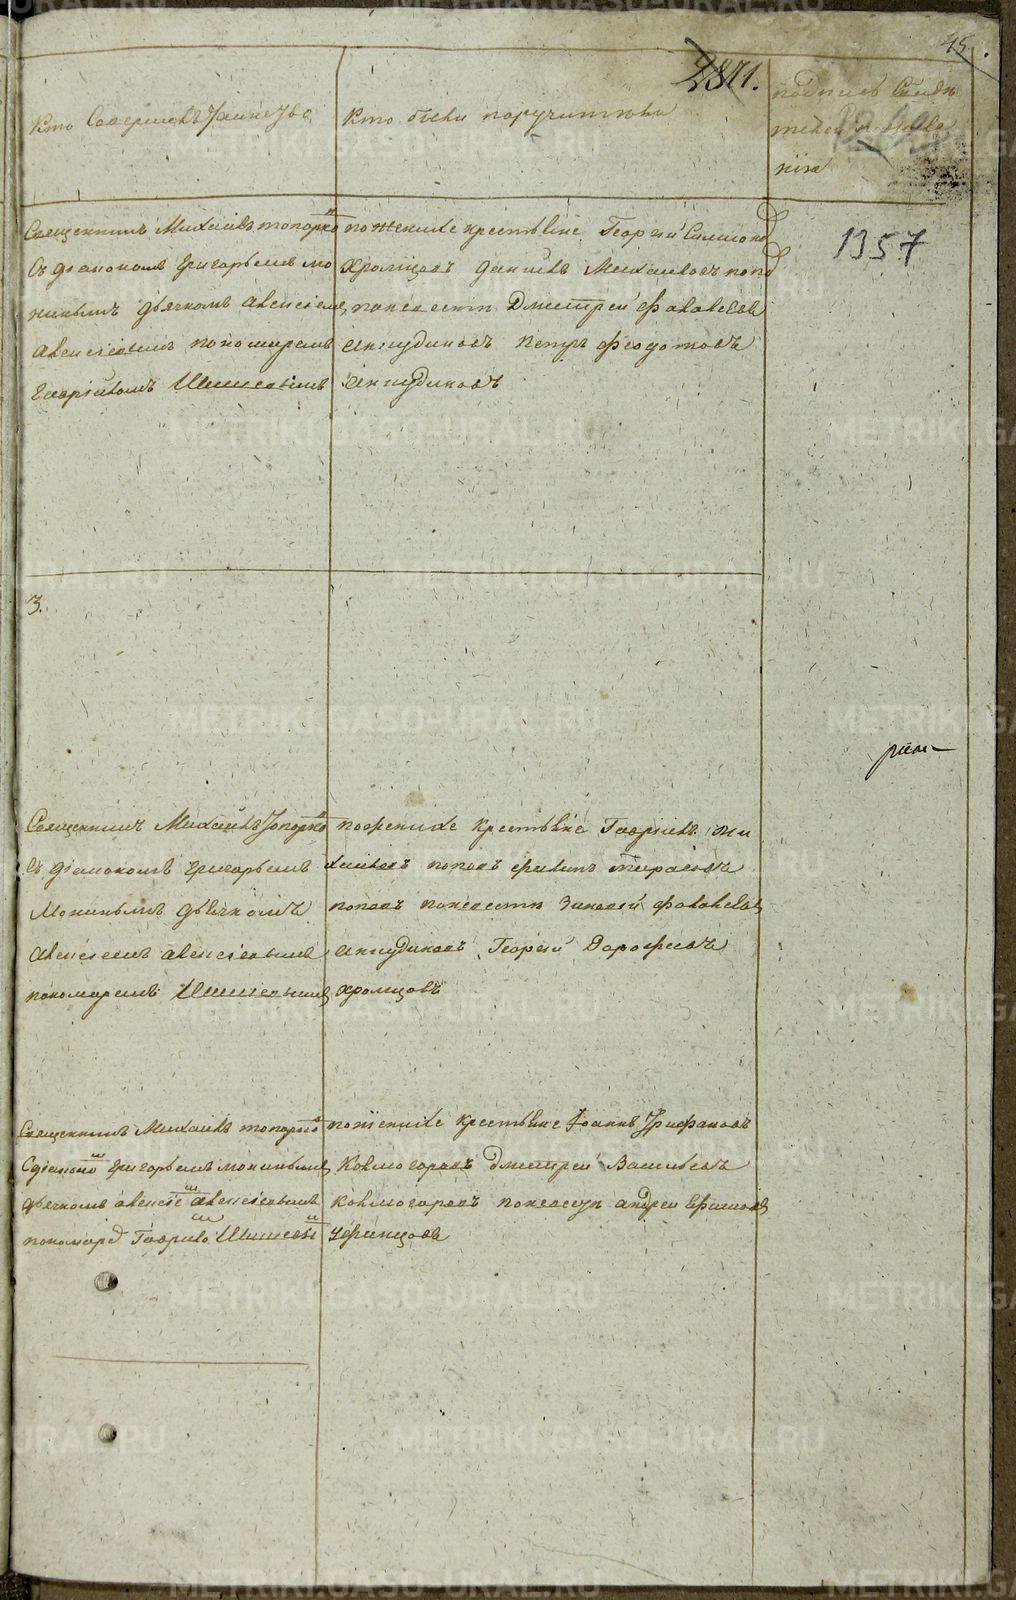 45.
2871.
Кто Совершалъ Таинство
Кто были поручители
подпись Свидѣ
телей
1357
Священникъ Михаилъ топорко
съ діакономъ григорьемъ мо
нинымъ дьячкомъ алексіемъ
алексіевымъ пономаремъ
Гавріиломъ Шишовымъ
по женихе крестьяне Георгій Симоно
Хромцовъ даниилъ Михаиловъ попо
по невести Дмитрей
анкудиновъ петръ федотовъ
анкудиновъ
3.
Священникъ Михаилъ Топорко
съ діакономъ григорьемъ
Монинымъ дьячкомъ
алексіемъ алексіевымъ
пономаремъ Шишовымъ
по женихе крестьяне Гавріилъ Ми
хаиловъ поповъ филипъ тарасовъ
поповъ по невести Зиновей
анкудиновъ Георгій Дорофеевъ
хромцовъ
Священникъ Михаилъ топорко
Сдіаконо григорьемъ монинымъ
дьячкомъ алексіе алексіевымъ
пономаре Гаврило Шишовы
по женихе крестьяне Іоаннъ Трифановъ
Колмогоровъ дмитрей Васильевъ
колмогоровъ по невести андрей ефимовъ
METRIKI.GASO-URAL.RU